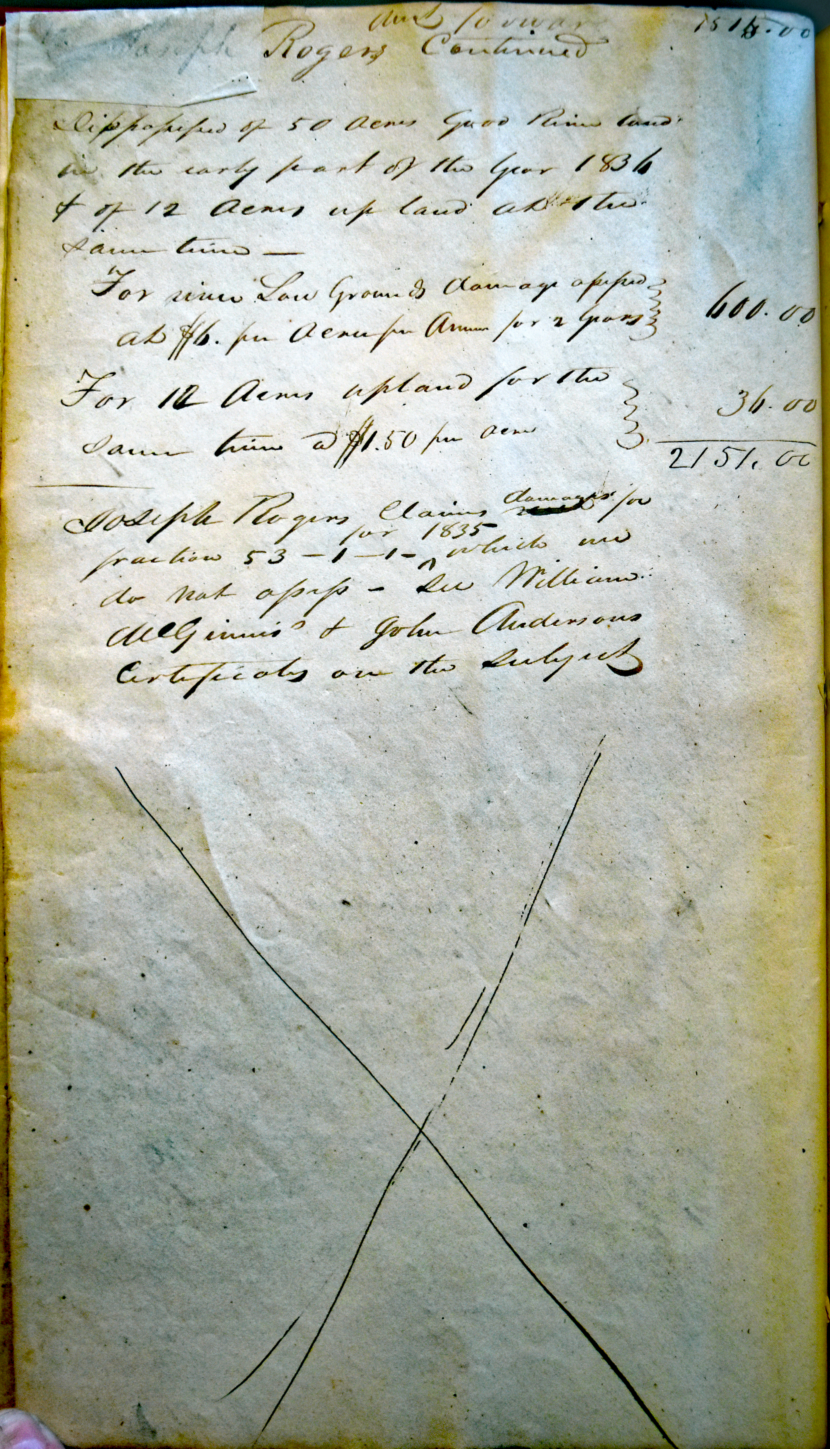 Amt forward 1515.00
Joseph Rogers Continued
Dispossessed of 50 Acres Good River land
in the early part of the Year 1836
& of 12 Acres up land at the
same time —
For river Low Grounds damage assessed
at $6. per Acre per Annum for 2 Years 600.00
For 12 Acres upland for the
same time @ $1.50 per acre 36.00
2151.00
Joseph Rogers Claims damages for
fraction 53 – 1 – 1 – for 1835 which we
do not assess – See William
McGinnis & John Andersons
Certificates on the subject